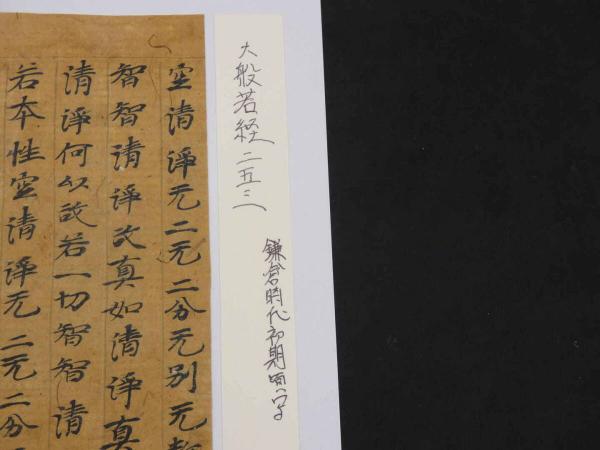 大般若経 二五三
鎌倉時代初期
空清淨无二无二分无別无
智智清淨故真如清淨真
清淨何以故若一切智智清
若本性空清淨无二无二分